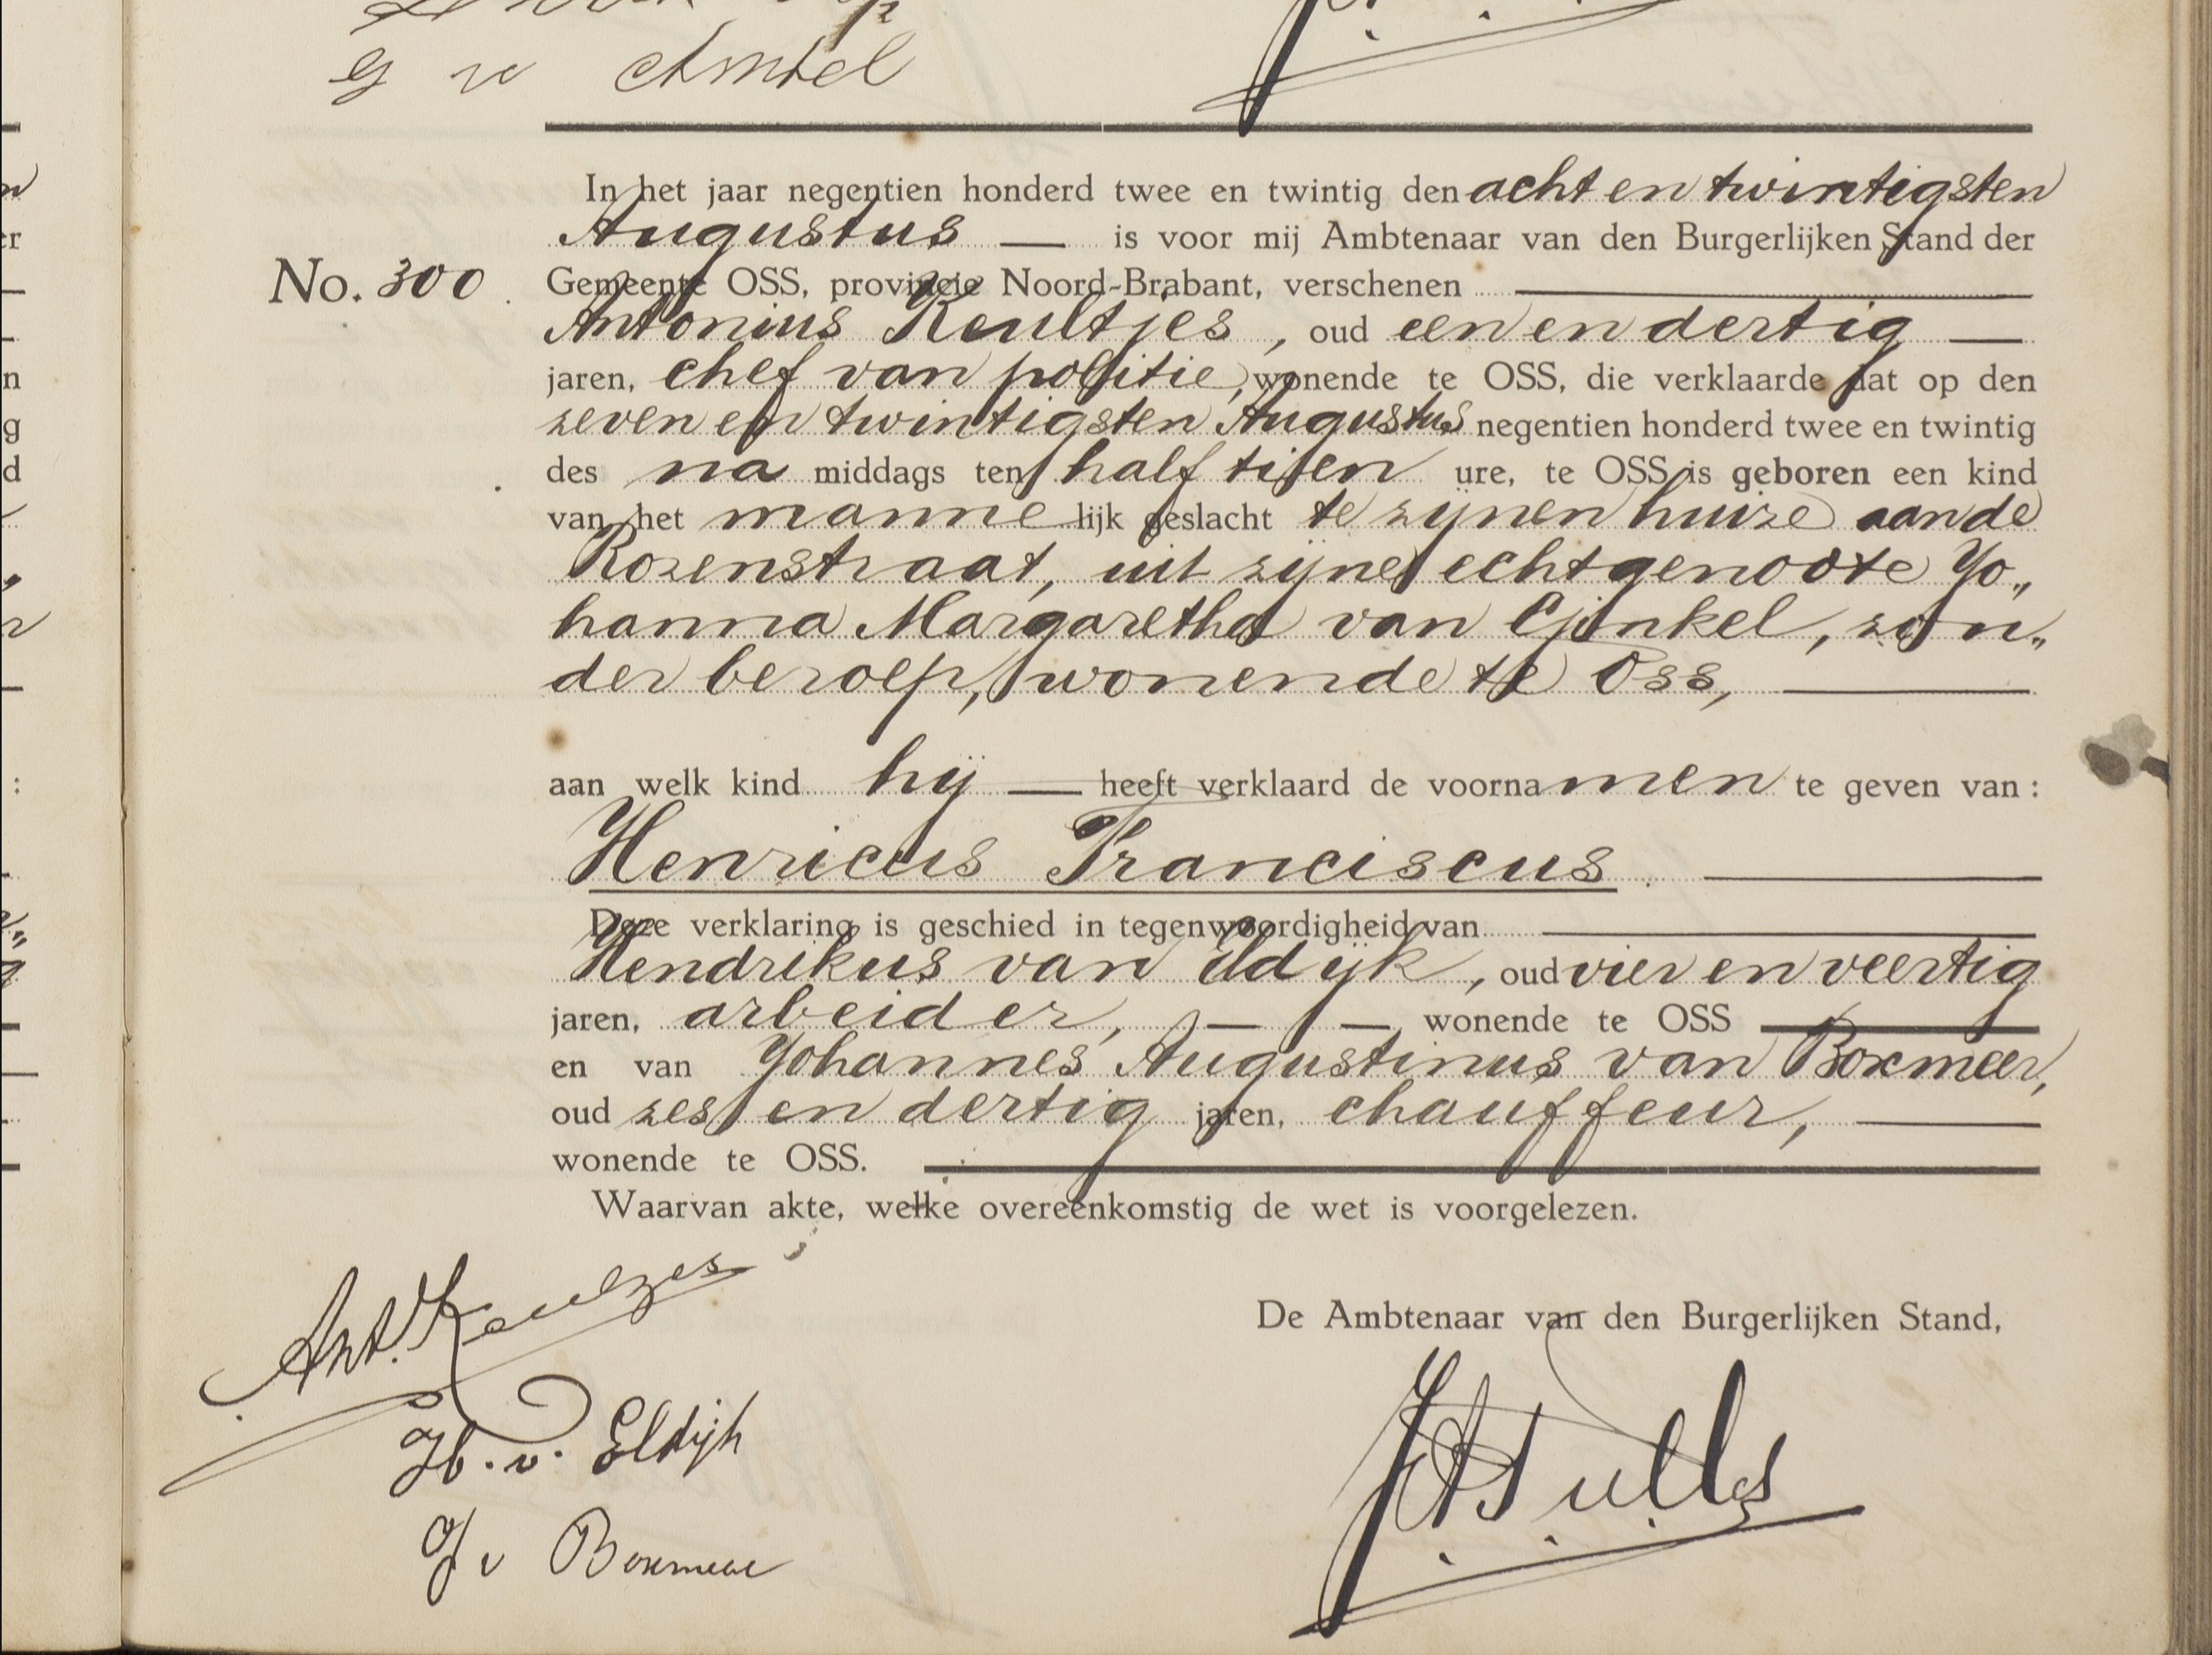 G v Amstel
In het jaar negentien honderd twee en twintig den acht en twintigsten
Augustus — is voor mij Ambtenaar van den Burgerlijken Stand der
No. 300. Gemeente OSS, provincie Noord-Brabant, verschenen
Antonius Keultjes, oud een en dertig —
jaren, chef van politie, wonende te OSS, die verklaarde dat op den
zeven en twintigsten Augustus negentien honderd twee en twintig
des na middags ten half tien ure, te OSS is geboren een kind
van het mannelijk geslacht te zijnen huize aan de
Rozenstraat, uit zijne echtgenoote Jo„
hanna Margaretha van Ginkel, zon„
der beroep, wonende te Oss, —
aan welk kind hij — heeft verklaard de voornamen te geven van:
Henricus Franciscus. —
Deze verklaring is geschied in tegenwoordigheid van
Hendrikus van Eldijk, oud vier en veertig
jaren, arbeider, — — wonende te OSS
en van Johannes Augustinus van Boxmeer,
oud zes en dertig jaren, chauffeur, —
wonende te OSS.
Waarvan akte, welke overeenkomstig de wet is voorgelezen.
De Ambtenaar van den Burgerlijken Stand,
H. v. Eldijk
J v Boxmeer